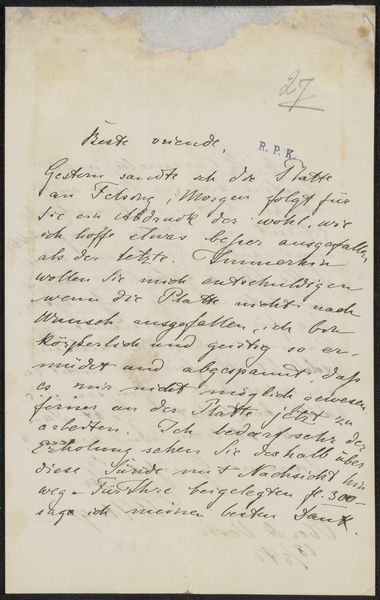 27
Beste vriende,
R. P. K.
Gestern sandte ich die Platte
an ; Morgen folgt für
Sie ein Abdruck der wohl, wie
ich hoffe etwas besser ausgefallen
als der letzte. Immerhin
wollen Sie mich entschuldigen
wenn die Platte nicht nach
Wunsch ausgefallen, ich bin
körperlich und geistig so er-
müdet und abgespannt, dass
es mir nicht möglich gewesen
ferner an der Platte jetzt zu
arbeiten. Ich bedarf sehr der
Erholung sehen Sie deshalb über
diese Sünde mit Nachsicht hin
weg – Für Ihre beigelegten fl. 300
sage ich meinen besten Dank.